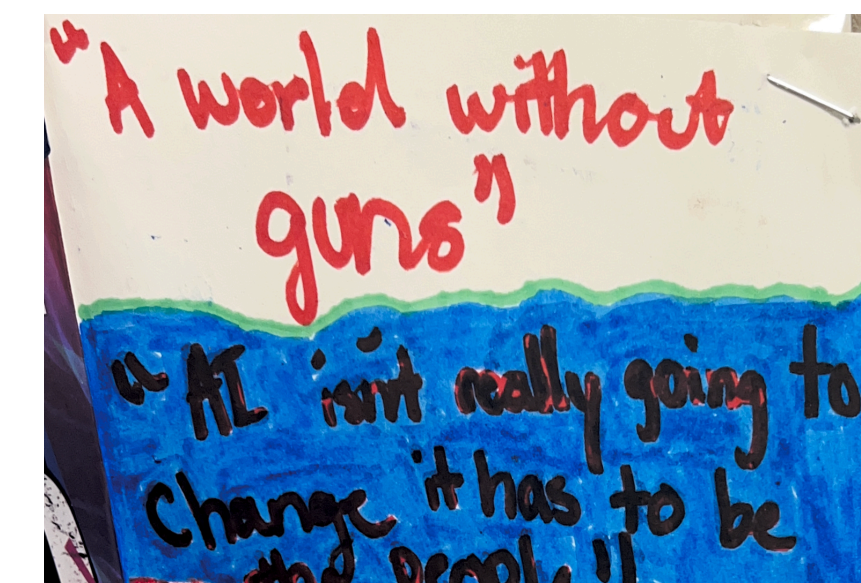 "A world without
guns"
"AI isn't really going to
Change it has to be
the people"